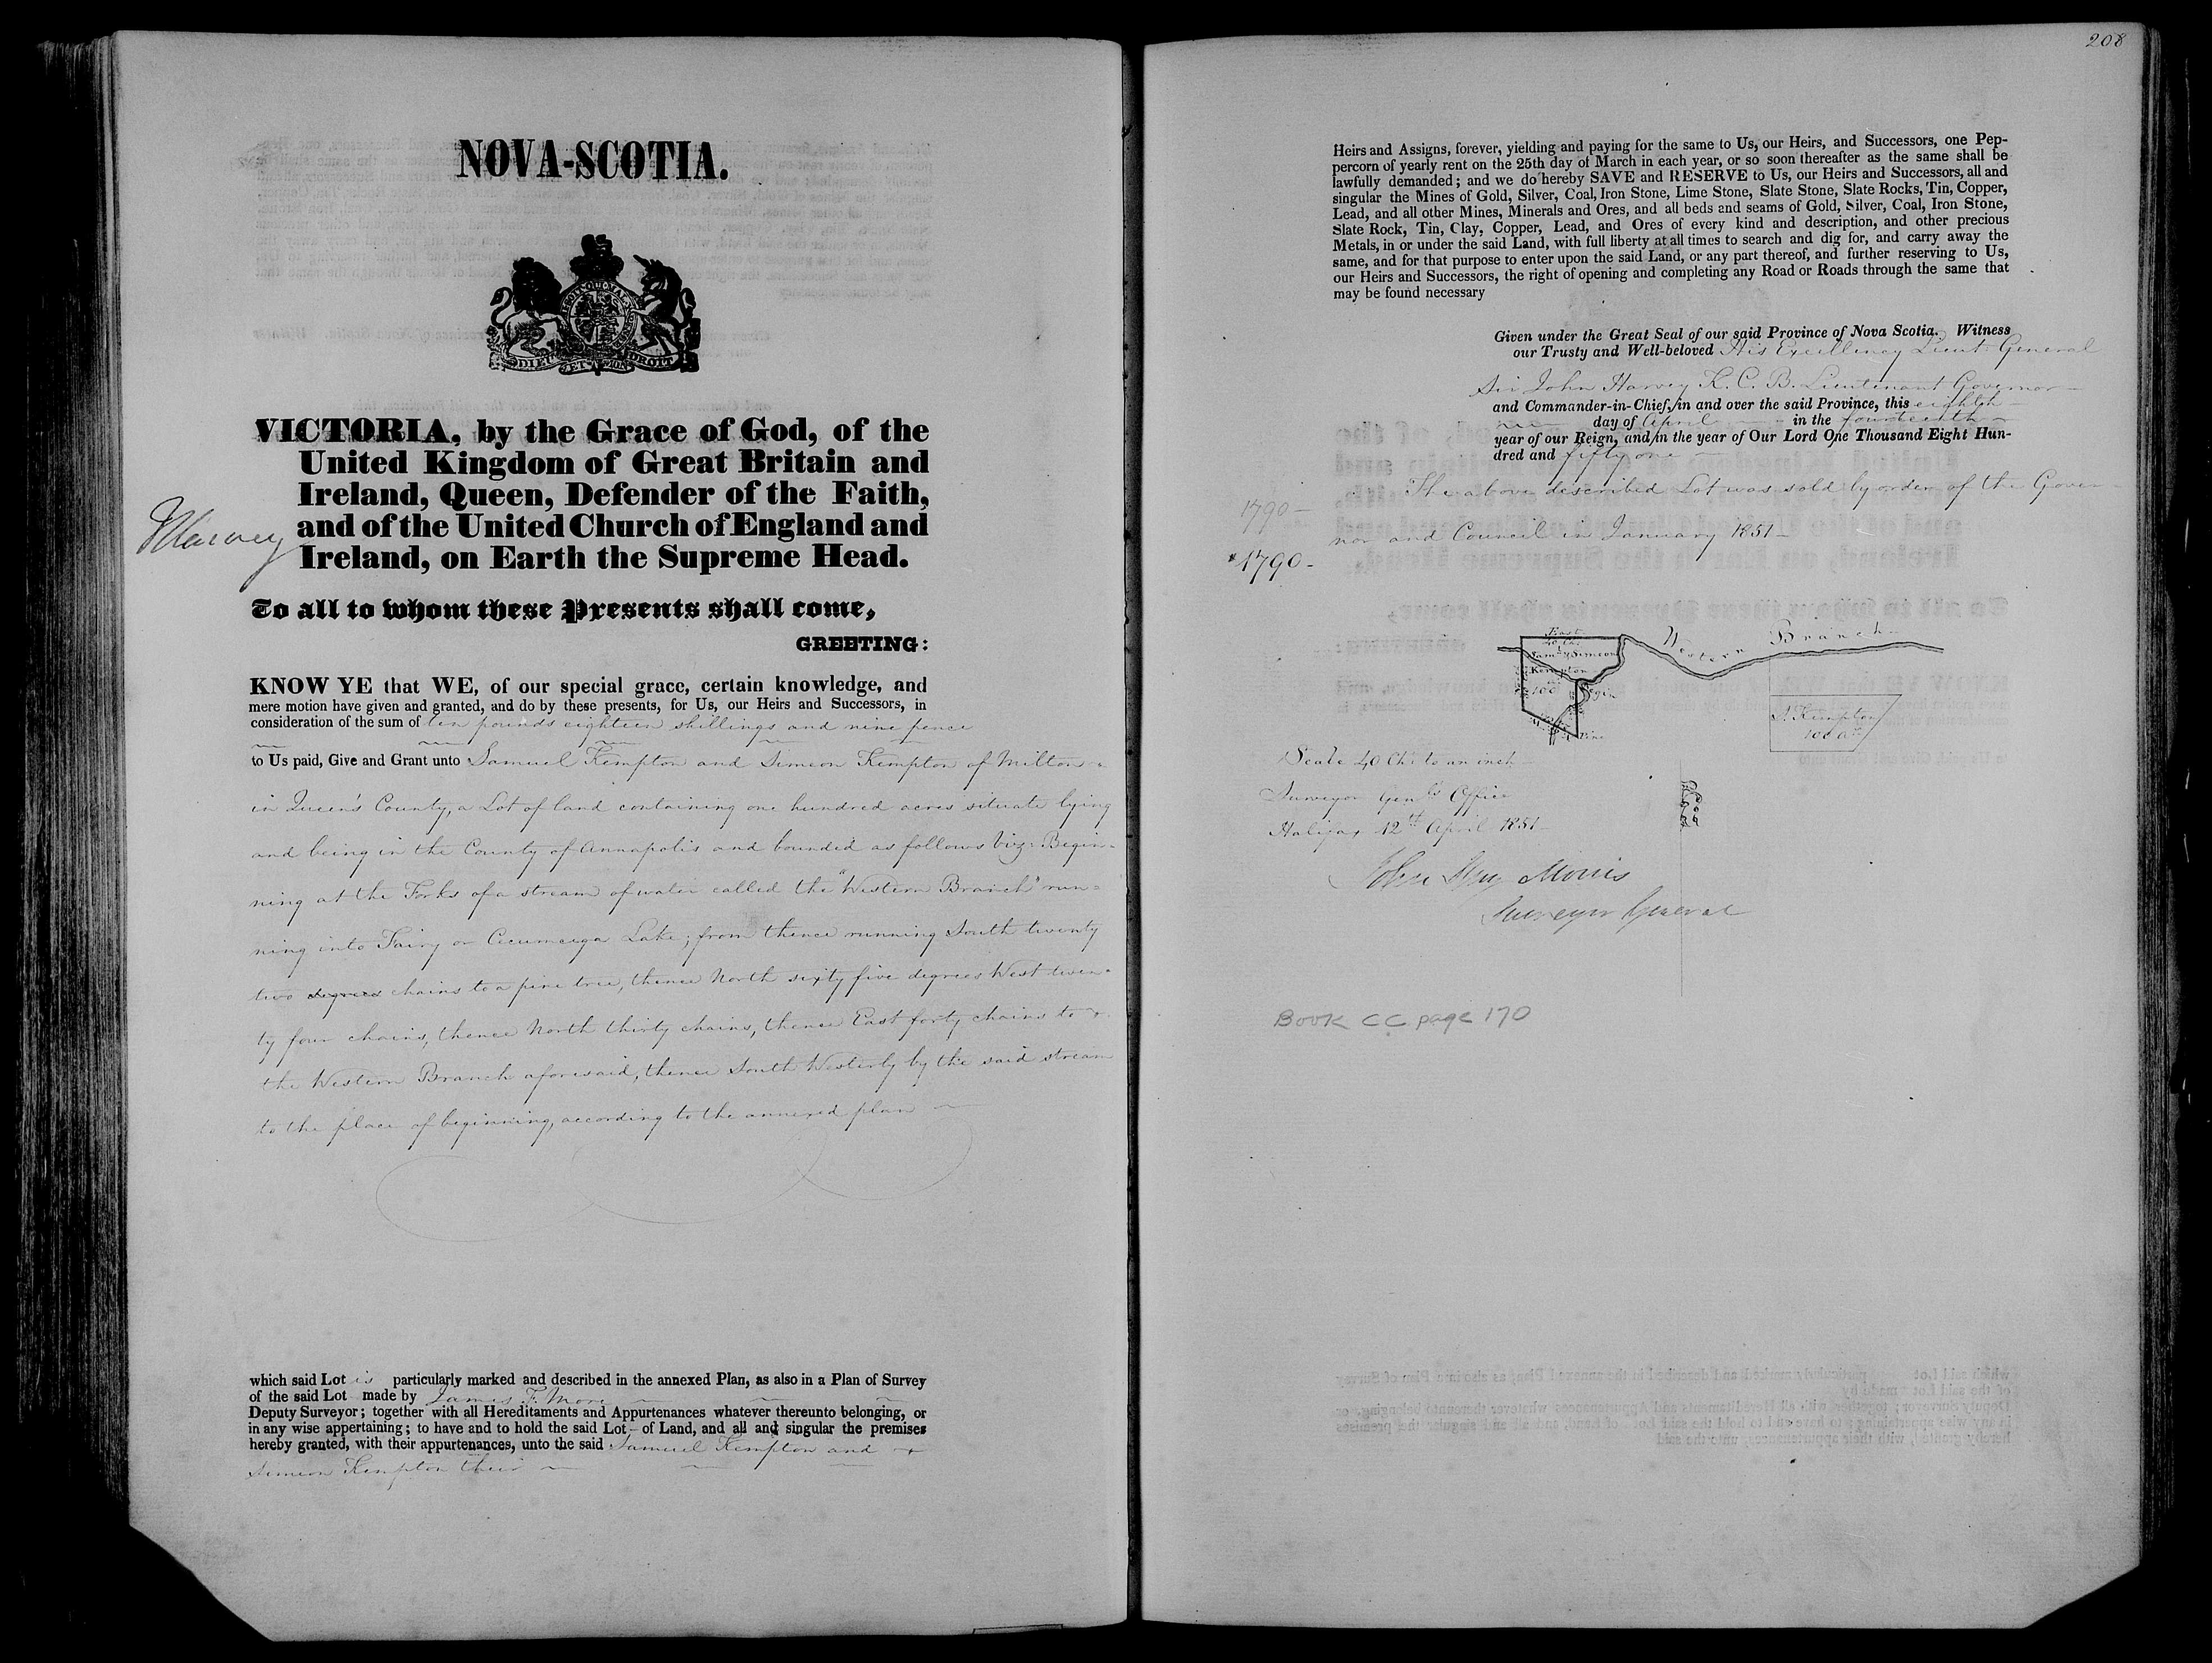 NOVA-SCOTIA.
DIEU ET MON DROIT
VICTORIA, by the Grace of God, of the
United Kingdom of Great Britain and
Ireland, Queen, Defender of the Faith,
and of the United Church of England and
Ireland, on Earth the Supreme Head.
J Harvey
To all to whom these Presents shall come,
GREETING:
KNOW YE that WE, of our special grace, certain knowledge, and
mere motion have given and granted, and do by these presents, for Us, our Heirs and Successors, in
consideration of the sum of ten pounds eighteen shillings and nine pence
to Us paid, Give and Grant unto Samuel Kempton and Simeon Kempton of Milton
in Queen's County, a Lot of land containing one hundred acres situate lying
and being in the County of Annapolis and bounded as follows viz: Begin-
ning at the Forks of a stream of water called the "Western Branch" run=
ning into Fairy or Cecumcega Lake; from thence running South twenty
two degrees chains to a pine tree, thence North sixty five degrees West twen=
ty four chains, thence North thirty chains, thence East forty chains to
the Western Branch aforesaid, thence South Westerly by the said stream
to the place of beginning, according to the annexed plan
which said Lot is particularly marked and described in the annexed Plan, as also in a Plan of Survey
of the said Lot made by James F. More
Deputy Surveyor; together with all Hereditaments and Appurtenances whatever thereunto belonging, or
in any wise appertaining; to have and to hold the said Lot - of Land, and all and singular the premises
hereby granted, with their appurtenances, unto the said Samuel Kempton and
Simeon Kempton their
208
Heirs and Assigns, forever, yielding and paying for the same to Us, our Heirs, and Successors, one Pep-
percorn of yearly rent on the 25th day of March in each year, or so soon thereafter as the same shall be
lawfully demanded; and we do hereby SAVE and RESERVE to Us, our Heirs and Successors, all and
singular the Mines of Gold, Silver, Coal, Iron Stone, Lime Stone, Slate Stone, Slate Rocks, Tin, Copper,
Lead, and all other Mines, Minerals and Ores, and all beds and seams of Gold, Silver, Coal, Iron Stone,
Slate Rock, Tin, Clay, Copper, Lead, and Ores of every kind and description, and other precious
Metals, in or under the said Land, with full liberty at all times to search and dig for, and carry away the
same, and for that purpose to enter upon the said Land, or any part thereof, and further reserving to Us,
our Heirs and Successors, the right of opening and completing any Road or Roads through the same that
may be found necessary
Given under the Great Seal of our said Province of Nova Scotia. Witness
our Trusty and Well-beloved His Excellency Lieut. General
Sir John Harvey K.C.B. Lieutenant Governor
and Commander-in-Chief, in and over the said Province, this eighth
day of April in the fourteenth
year of our Reign, and in the year of Our Lord One Thousand Eight Hun-
dred and fifty one
The above described Lot was sold by order of the Gover-
1790-
nor and Council in January 1851-
1790-
Western Branch
East
Saml. & Simeon
Kempton
100
Begin
Pine
S. Kempton
100 ac
Scale 40 Chs to an inch
Surveyor Genls Office
Halifax 12th April 1851
John Spry Morris
Surveyor General
Book CC page 170